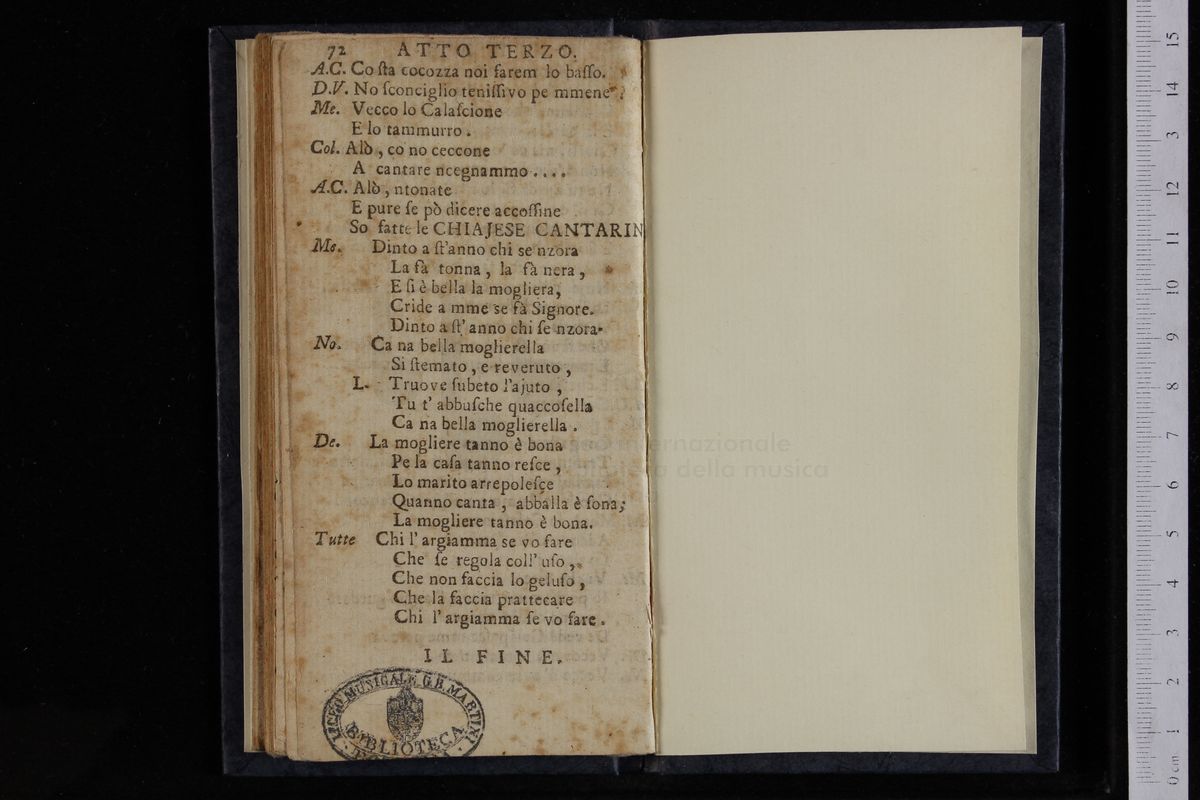 72 ATTO TERZO.
A.C. Co ſta cocozza noi farem lo baſſo.
D.V. No ſconciglio teniſſivo pe mmene?
Me. Vecco lo Calaſcione
E lo tammurro.
Col. Alò, co no ceccone
A cantare ncegnammo....
A.C. Alò, ntonate
E pure ſe pò dicere accoſſine
So fatte le CHIAJESE CANTARIN
Me. Dinto a ſt'anno chi se nzora
La fà tonna, la fà nera,
E ſi è bella la mogliera,
Cride a mme se fà Signore.
Dinto a ſt' anno chi ſe nzora.
No. Ca na bella moglierella
Si ſtemato, e reveruto,
L. Truove ſubeto l'ajuto,
Tu t' abbuſche quaccoſella
Ca na bella moglierella.
De. La mogliere tanno è bona
Pe la caſa tanno reſce,
Lo marito arrepoleſce
Quanno canta, abballa è ſona;
La mogliere tanno è bona.
Tutte Chi l' argiamma se vo fare
Che ſe regola coll' uſo,
Che non faccia lo geluſo,
Che la faccia prattecare
Chi l' argiamma ſe vo fare.
IL FINE.
LICEO MUSICALE G.B. MARTINI
BIBLIOTECA
internazionale
della musica
0 cm 1 2 3 4 5 6 7 8 9 10 11 12 13 14 15